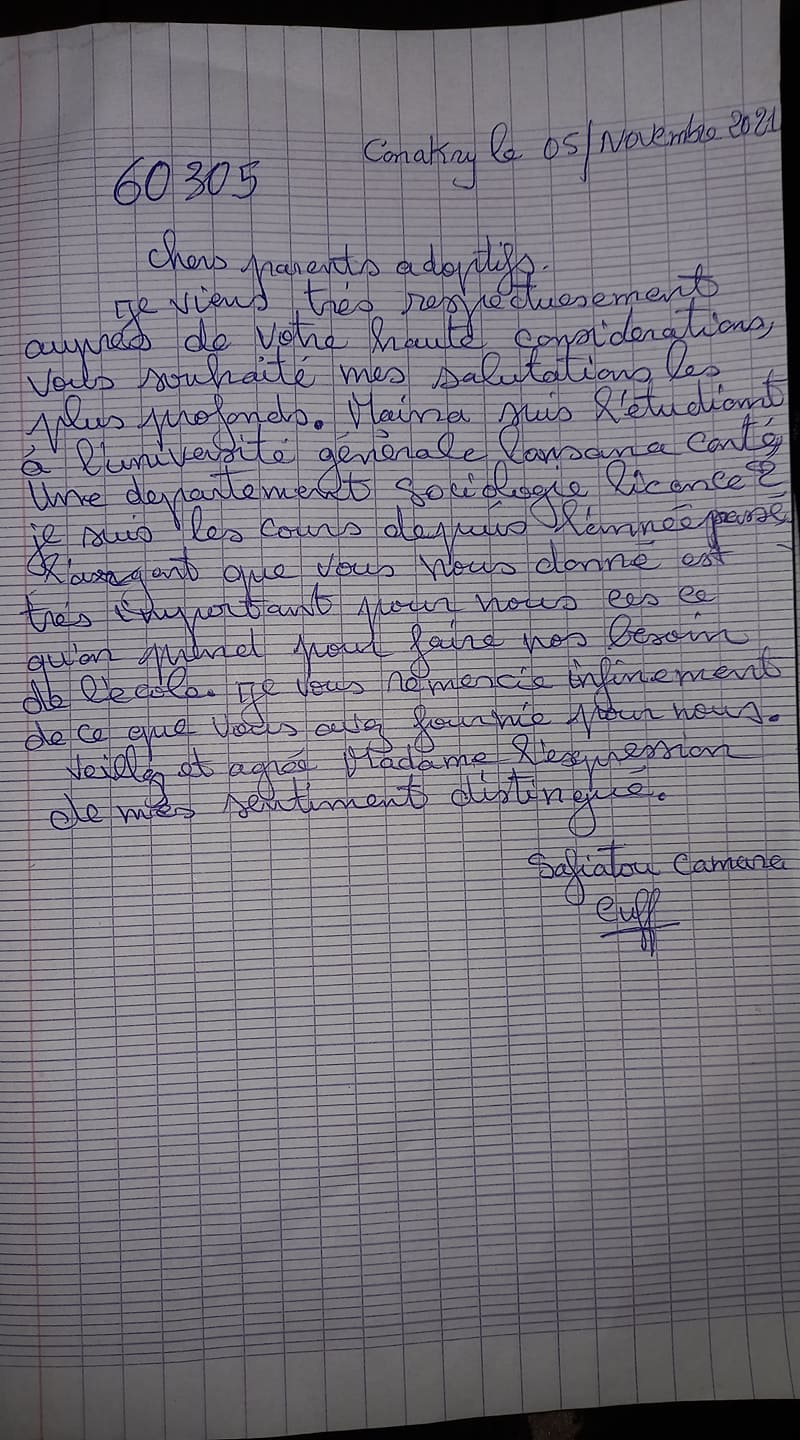 Conakry le 05/Novembre 2021
60305
chers parents adoptifs.
Je viens très respectuesement
auprès de votre haute considerations,
vous souhaité mes salutations les
plus profonds. Maina suis l'etudiant
à l'université générale lansana conté,
Une departement Sociologie licence 2
je suis les cours depuis l'année passé
L'argent que vous nous donné est
très important pour nous ces ce
qu'on prend pour faire nos besoin
de l'ecole. Je vous remercie infinement
de ce que vous avez fournie pour nous.
Veillez et agréé Madame l'expression
de mes sentiment distingué.
Safiatou Camara